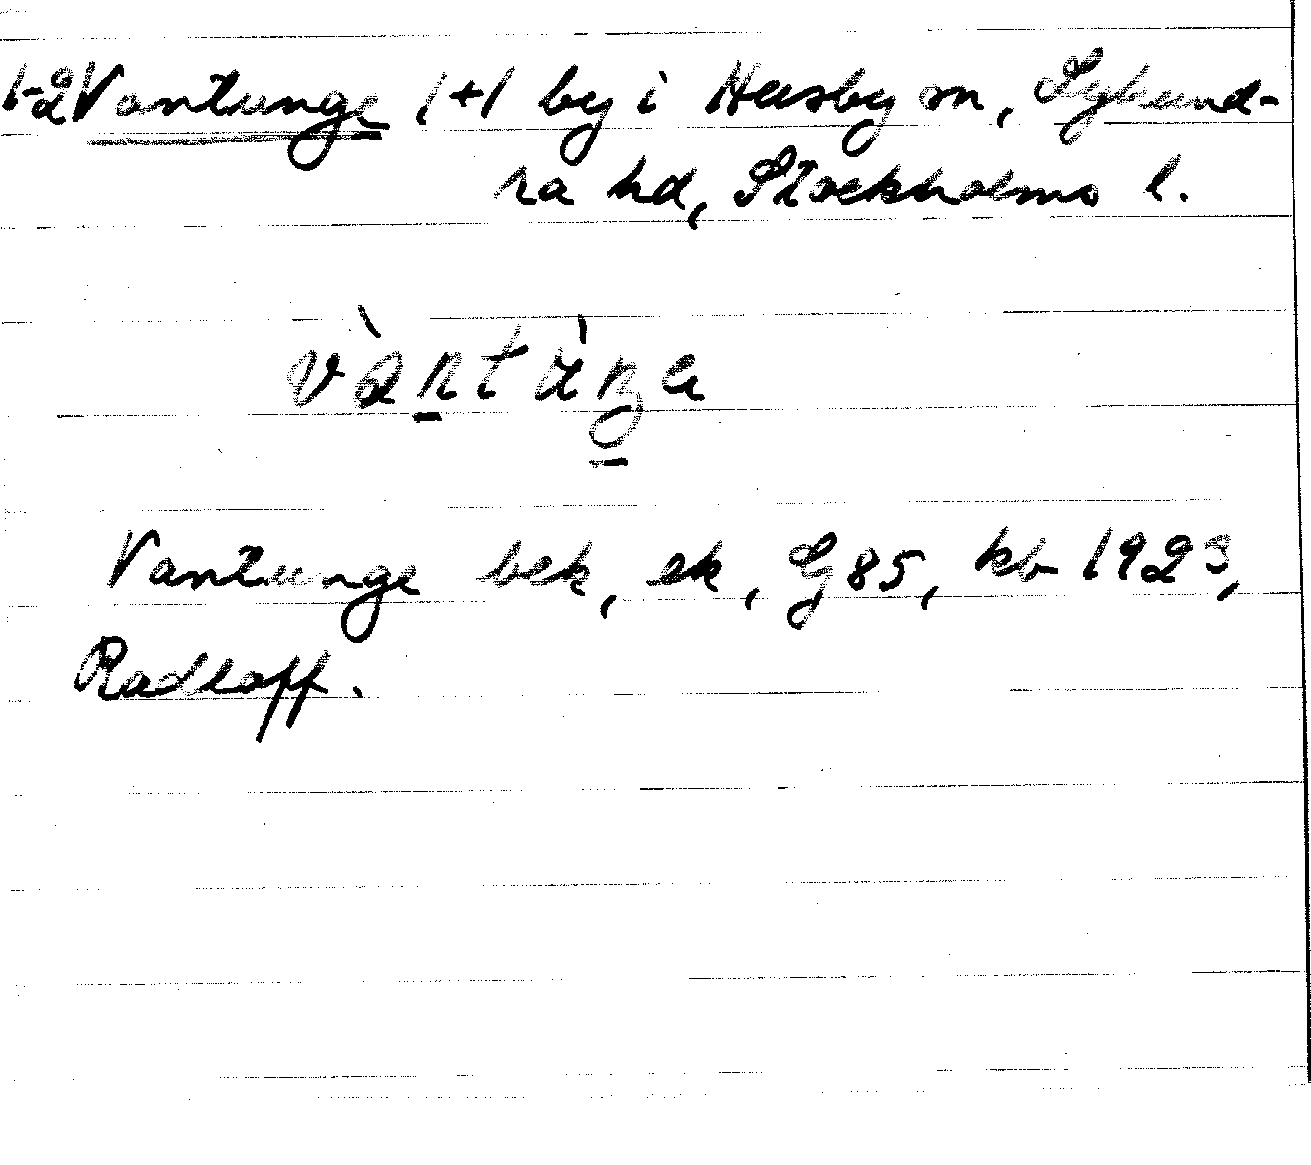 1-2 Vantunge 1+1 by i Husby sn, Lyhund-
ra hd, Stockholms l.
Vantunge bek, ek, Gj 85, kb 1923,
Radloff.